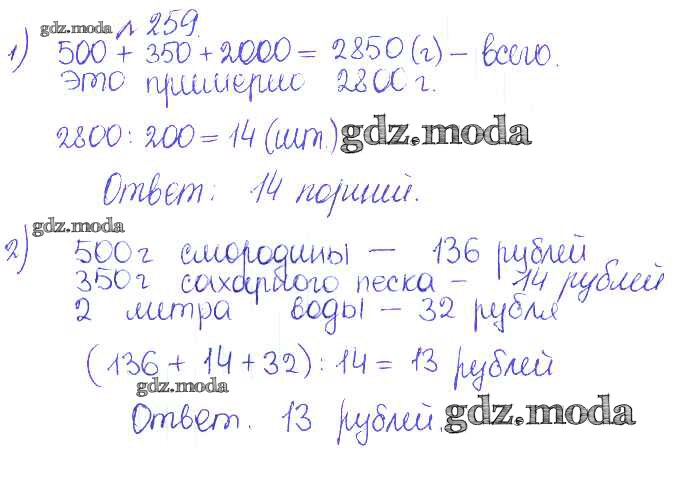 gdz.moda № 259.
1) 500 + 350 + 2000 = 2850 (г) – всего.
это примерно 2800 г.
2800 : 200 = 14 (шт.) gdz.moda
Ответ: 14 порций.
gdz.moda
2) 500 г смородины — 136 рублей
350 г сахарного песка – 14 рублей
2 метра воды – 32 рубля
(136 + 14 + 32) : 14 = 13 рублей
gdz.moda
Ответ. 13 рублей. gdz.moda